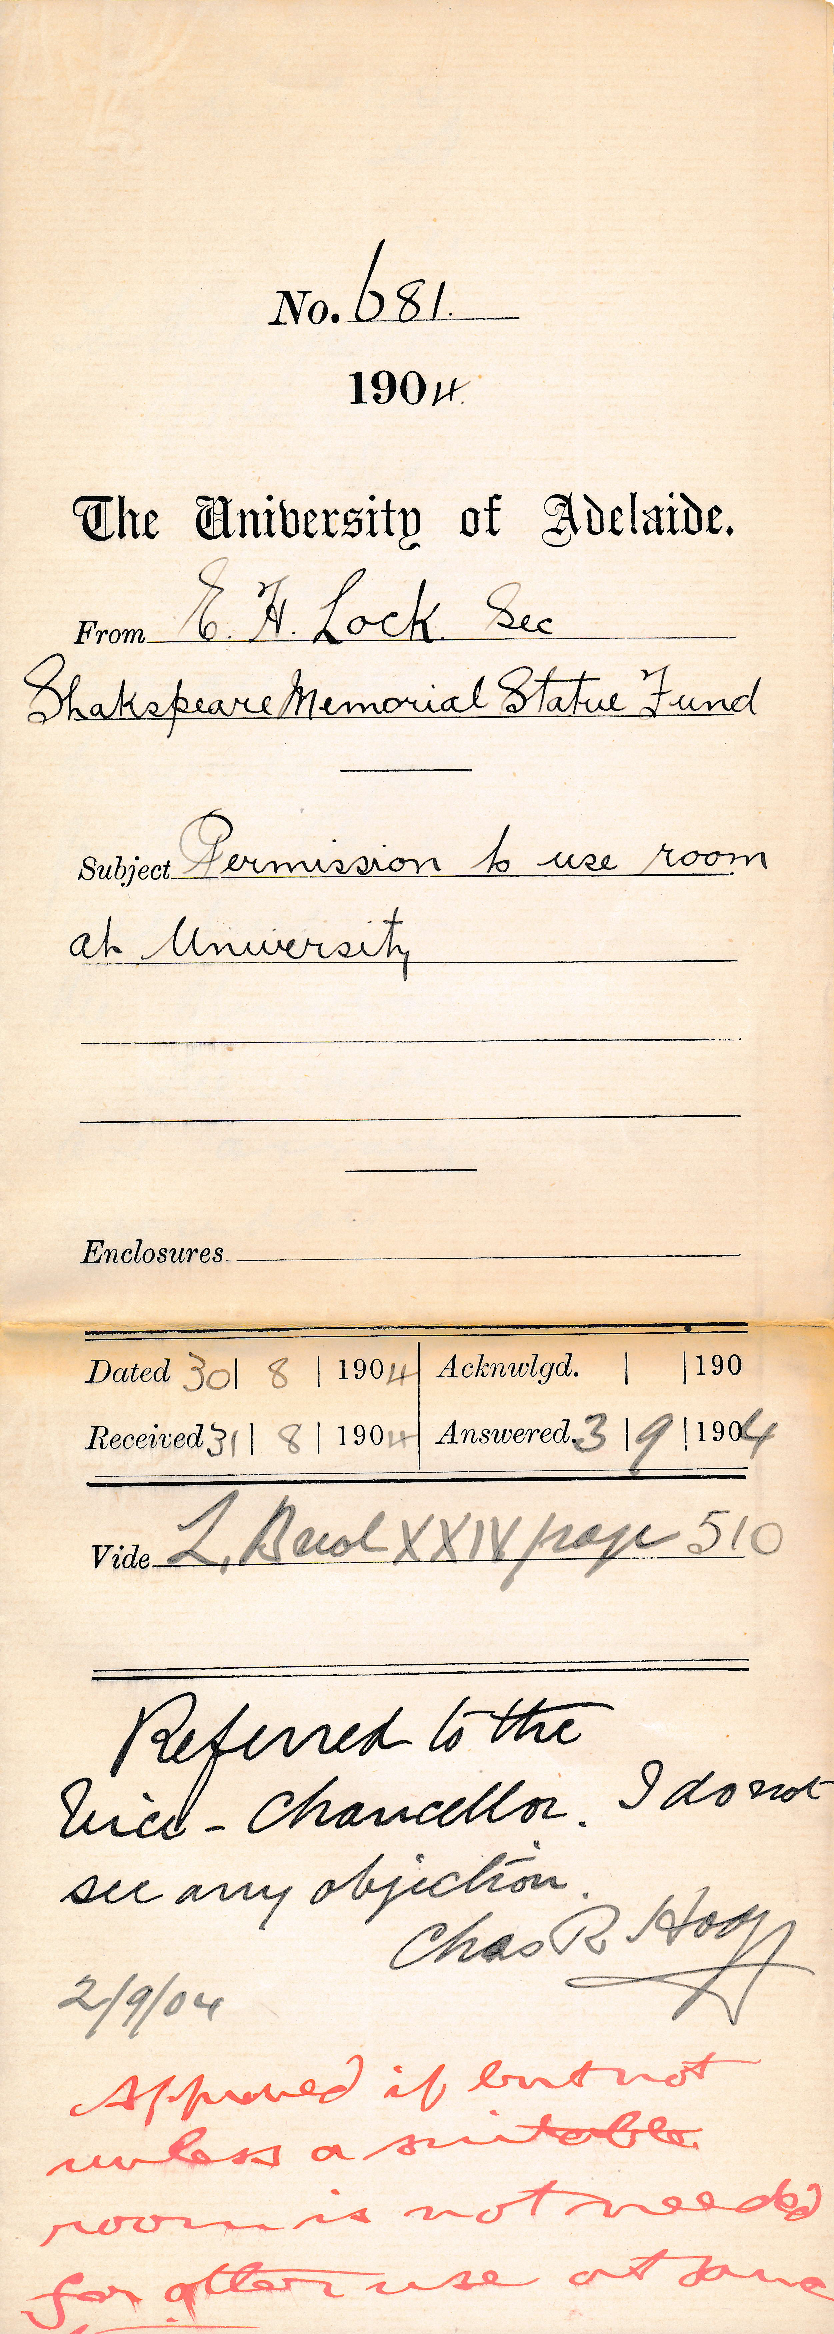 No. 681.
1904.
The University of Adelaide.
From E. H. Lock. Sec
Shakspeare Memorial Statue Fund
Subject Permission to use room
at University
Enclosures
Dated 30 | 8 | 1904 Acknwlgd. | | 190
Received 31 | 8 | 1904 Answered. 3 | 9 | 1904
Vide L. Book XXIV page 510
Referred to the
Vice-Chancellor. I do not
see any objection.
Chas R Hodge
2/9/04
Approved if but not
unless a suitable
room is not needed
for other use at same